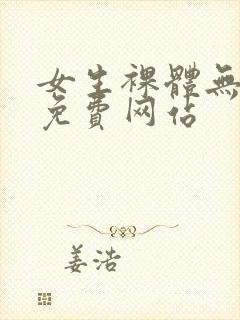 女生裸體無
免費网佔
姜浩